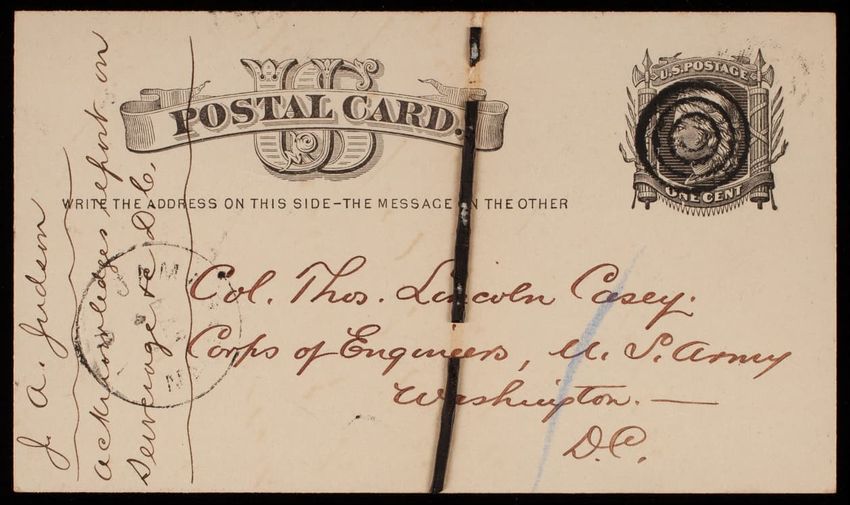 US
POSTAL CARD.
U.S. POSTAGE
ONE CENT
WRITE THE ADDRESS ON THIS SIDE-THE MESSAGE ON THE OTHER
Col. Thos. Lincoln Casey.
Corps of Engineers, U. S. Army
Washington. —
D.C.
J. A. Judson
acknowledges report on
Sewerage &c D.C.